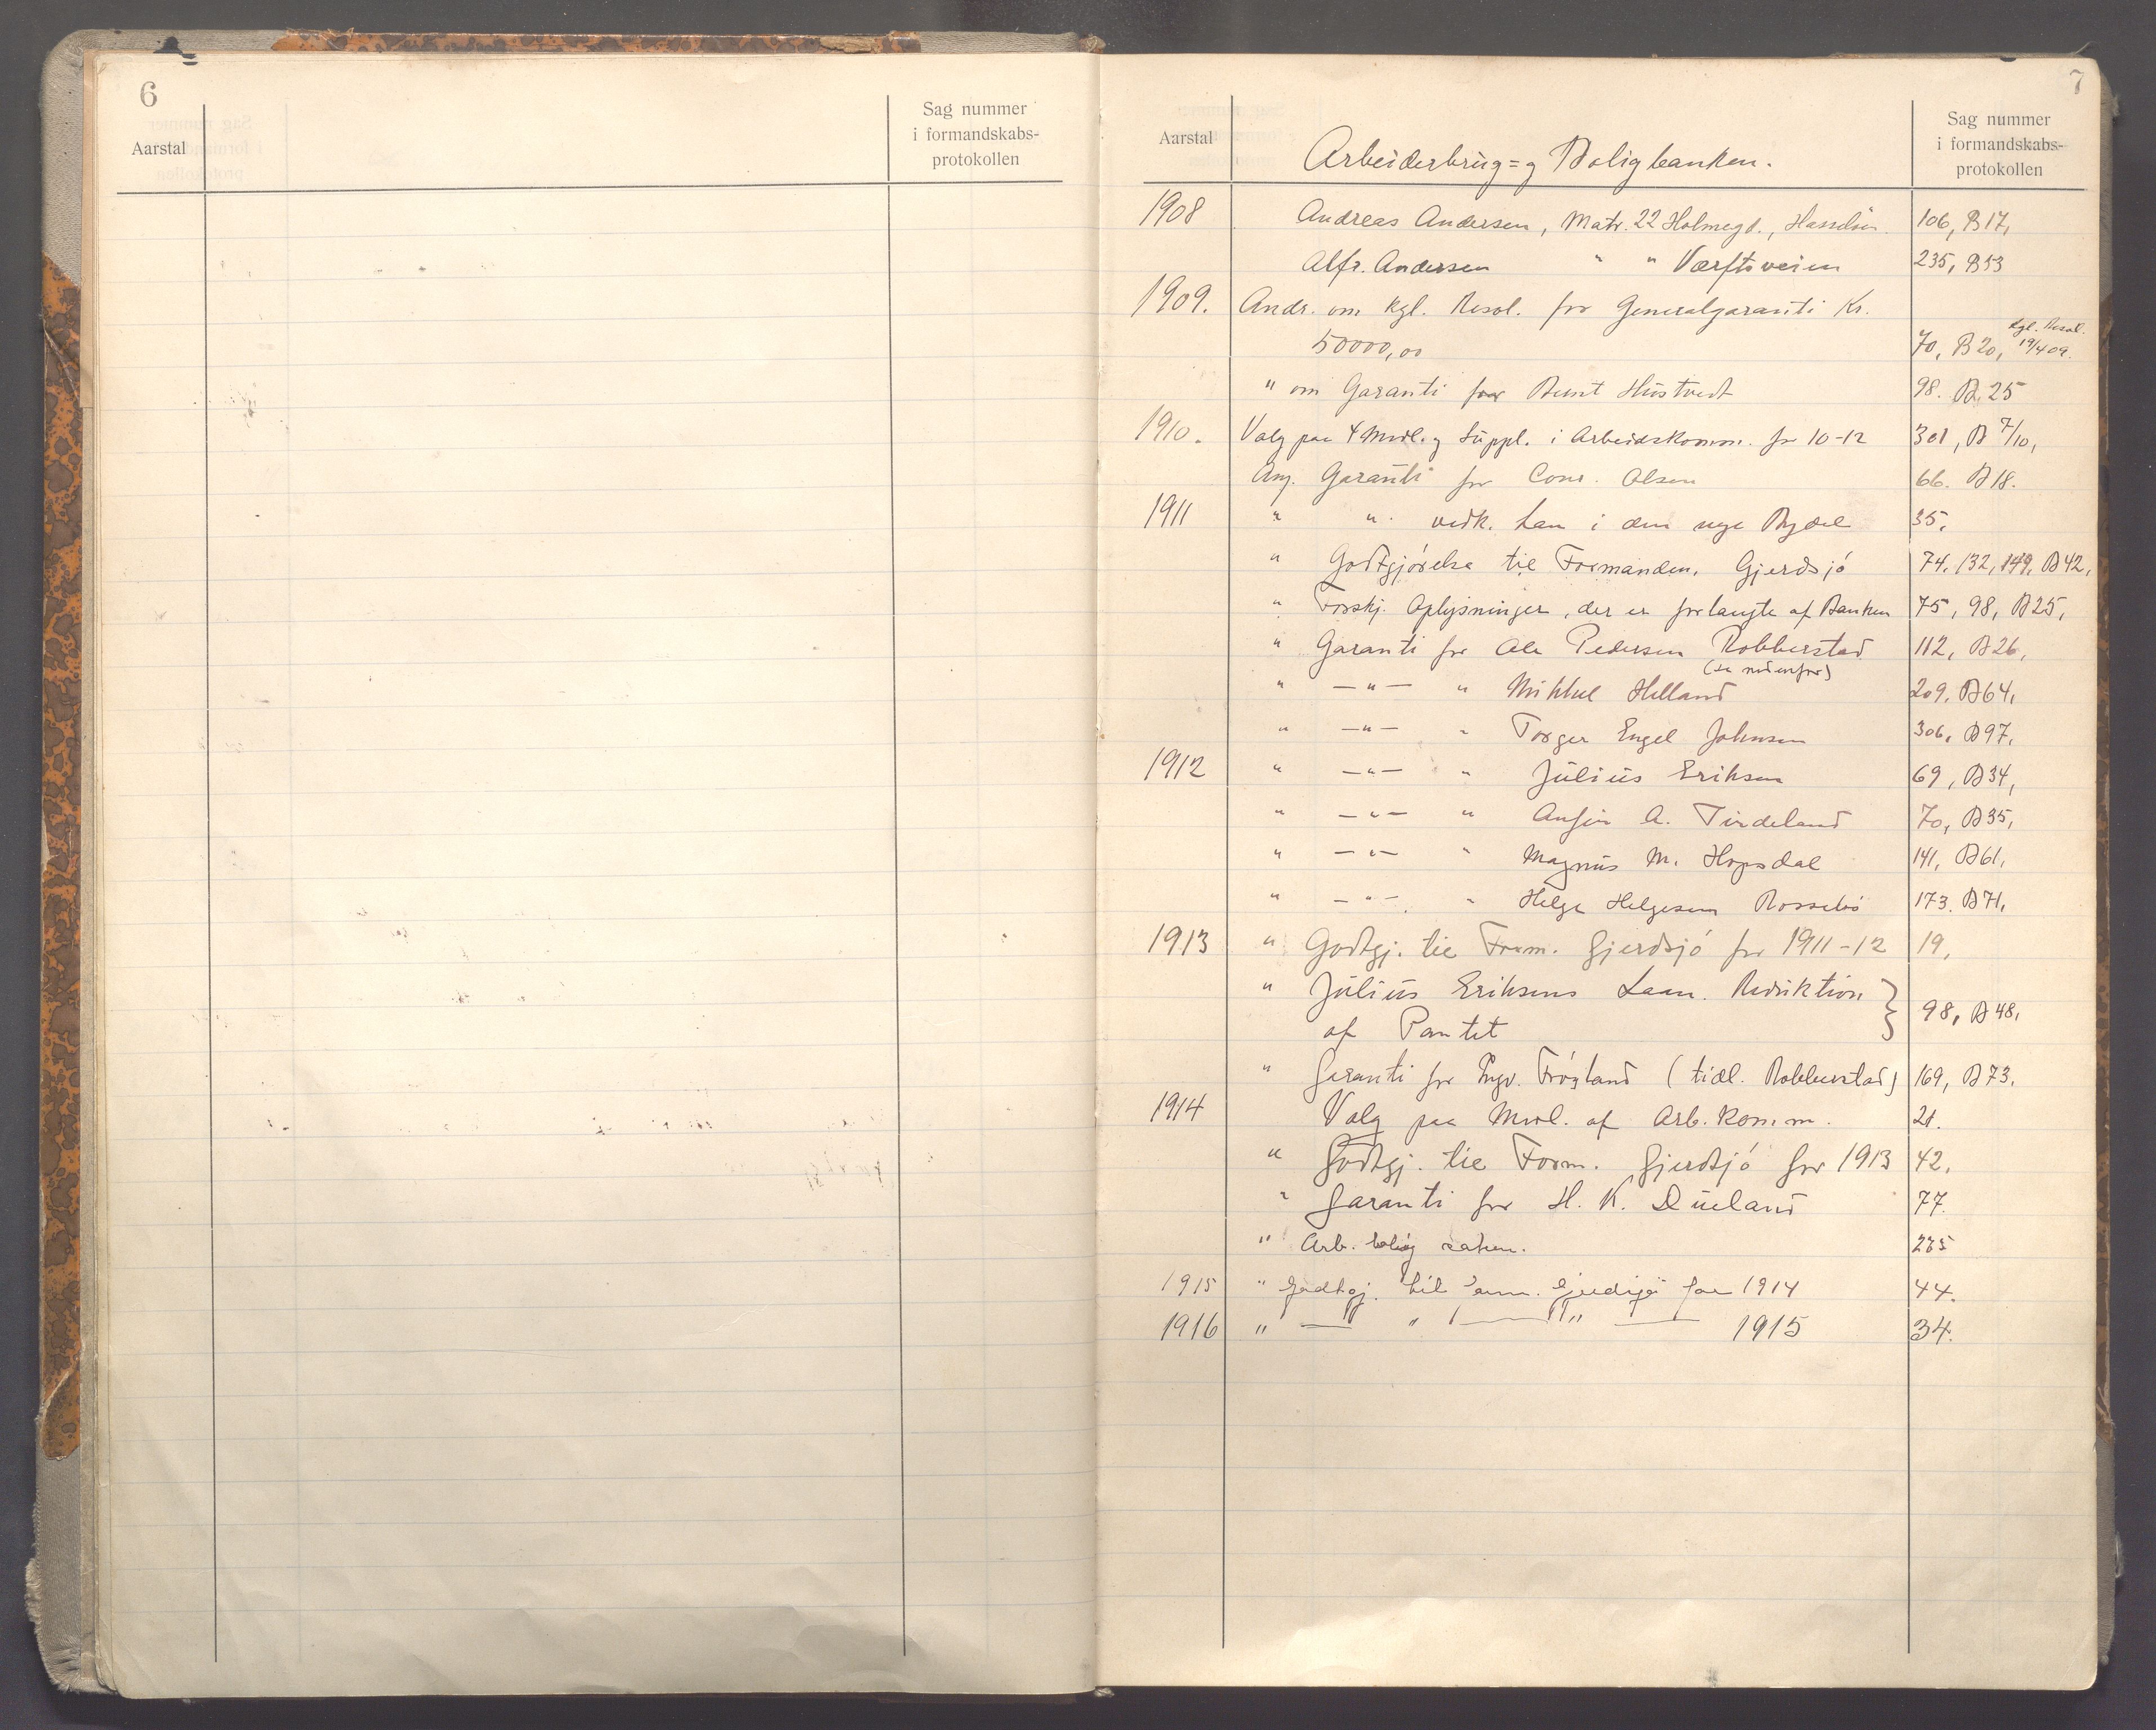 6
Aarstal
Sag nummer
i formandskabs-
protokollen
7
Aarstal
Arbeiderbrug= og Boligbanken.
Sag nummer
i formandskabs-
protokollen
1908 Andreas Andersen, Matr. 22 Holmegd., 106, B17,
Alfr. Andersen " " Værftsveien 235, B53
1909. Andr. om kgl. Resol. for Generalgaranti Kr.
50000,00 70, B20, kgl. Resol. 19/4 09.
" om Garanti for Bernt Hustvedt 98. B.25
1910. Valg paa 4 Medl. og Suppl. i Arbeidskomm. for 10-12 301, B 7/10,
Ang. Garanti for Conr. Olsen 66. B18.
1911 " " vedk. Laan i den nye Bydel 35,
" Godtgjörelse til Formanden, Gjerdsjö 74, 132, 149, B42,
" Forskj. Oplysninger, der er forlangte af Banken 75, 98, B25,
" Garanti for Ole Pedersen Robberstad 112, B26,
(se nedenfor)
" —"— " Mikkel Helland 209, B64,
" —"— " Torger Engel Johnsen 306, B97,
1912 " —"— " Julius Eriksen 69, B34,
" —"— " Anfin A. Tindeland 70, B35,
" —"— " Magnus M. Hopsdal 141, B61,
" —"— " Helge Helgesen Rossebö 173. B71,
1913 " Godtgj. til Form. Gjerdsjö for 1911-12 19,
" Julius Eriksens Laan. Reduktion
af Pantet } 98, B48,
" Garanti for Ingv. Frögland (tidl. Robberstad) 169, B73,
1914 Valg paa Medl. af Arb. komm. 21.
" Godtgj. til Form. Gjerdsjö for 1913 42,
" Garanti for H. K. Dueland 77.
" Arb. bolig saken. 235
1915 " Godtgj. til Form. Gjerdsjö for 1914 44.
1916 " — " — " — 1915 34.